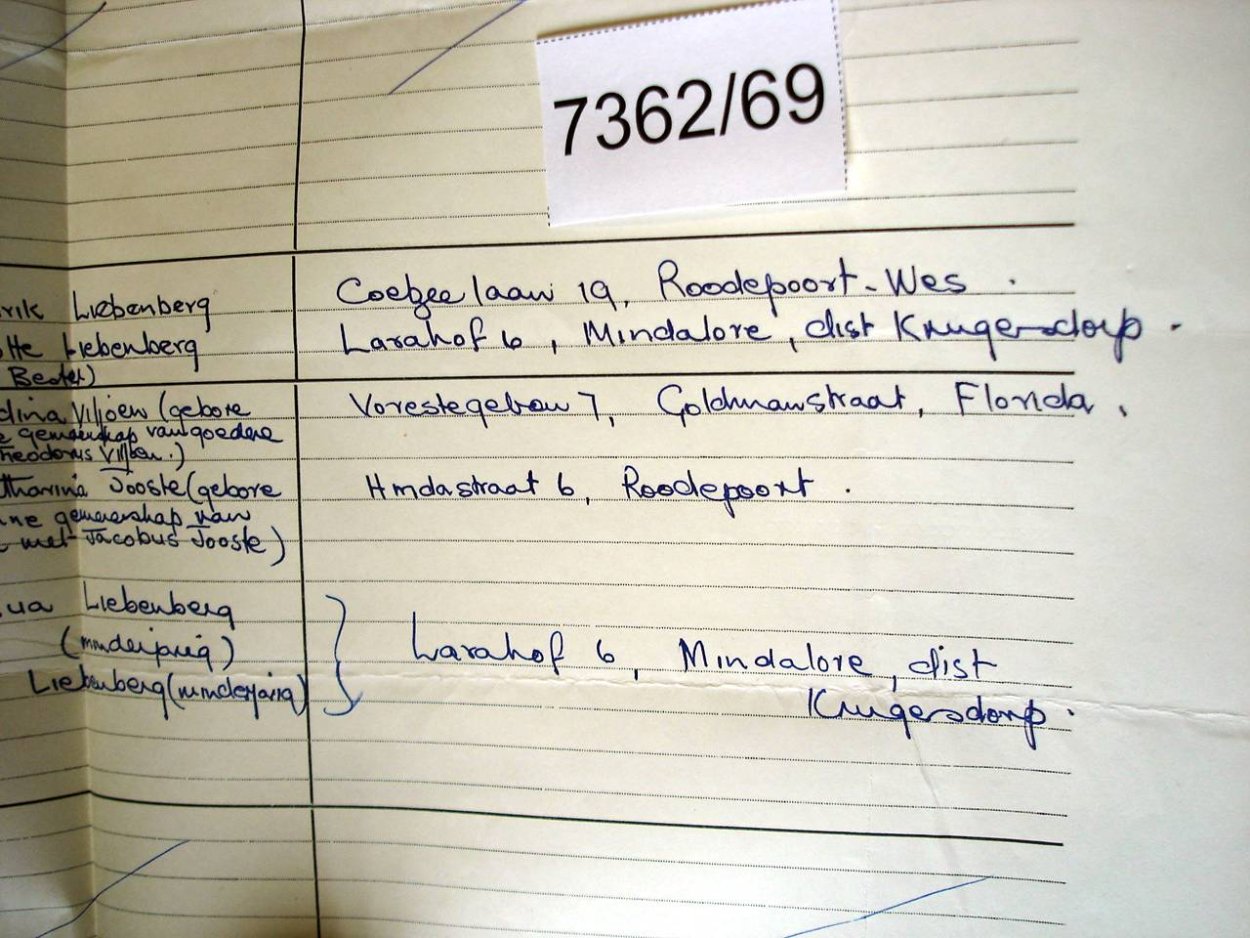 7362/69
rik Liebenberg Coetzee laan 19, Roodepoort-Wes.
tte Liebenberg Larahof 6, Mindalore, dist Krugersdorp.
Bester)
dina Viljoen (gebore Vorestegebou 7, Goldmanstraat, Florida,
gemeenskap van goedere
heodorus Viljoen.)
tharina Jooste (gebore Hindastraat 6, Roodepoort.
ne gemeenskap van
met Jacobus Jooste)
ua Liebenberg
(minderjarig) Larahof 6, Mindalore, dist
Liebenberg (minderjarig) Krugersdorp.